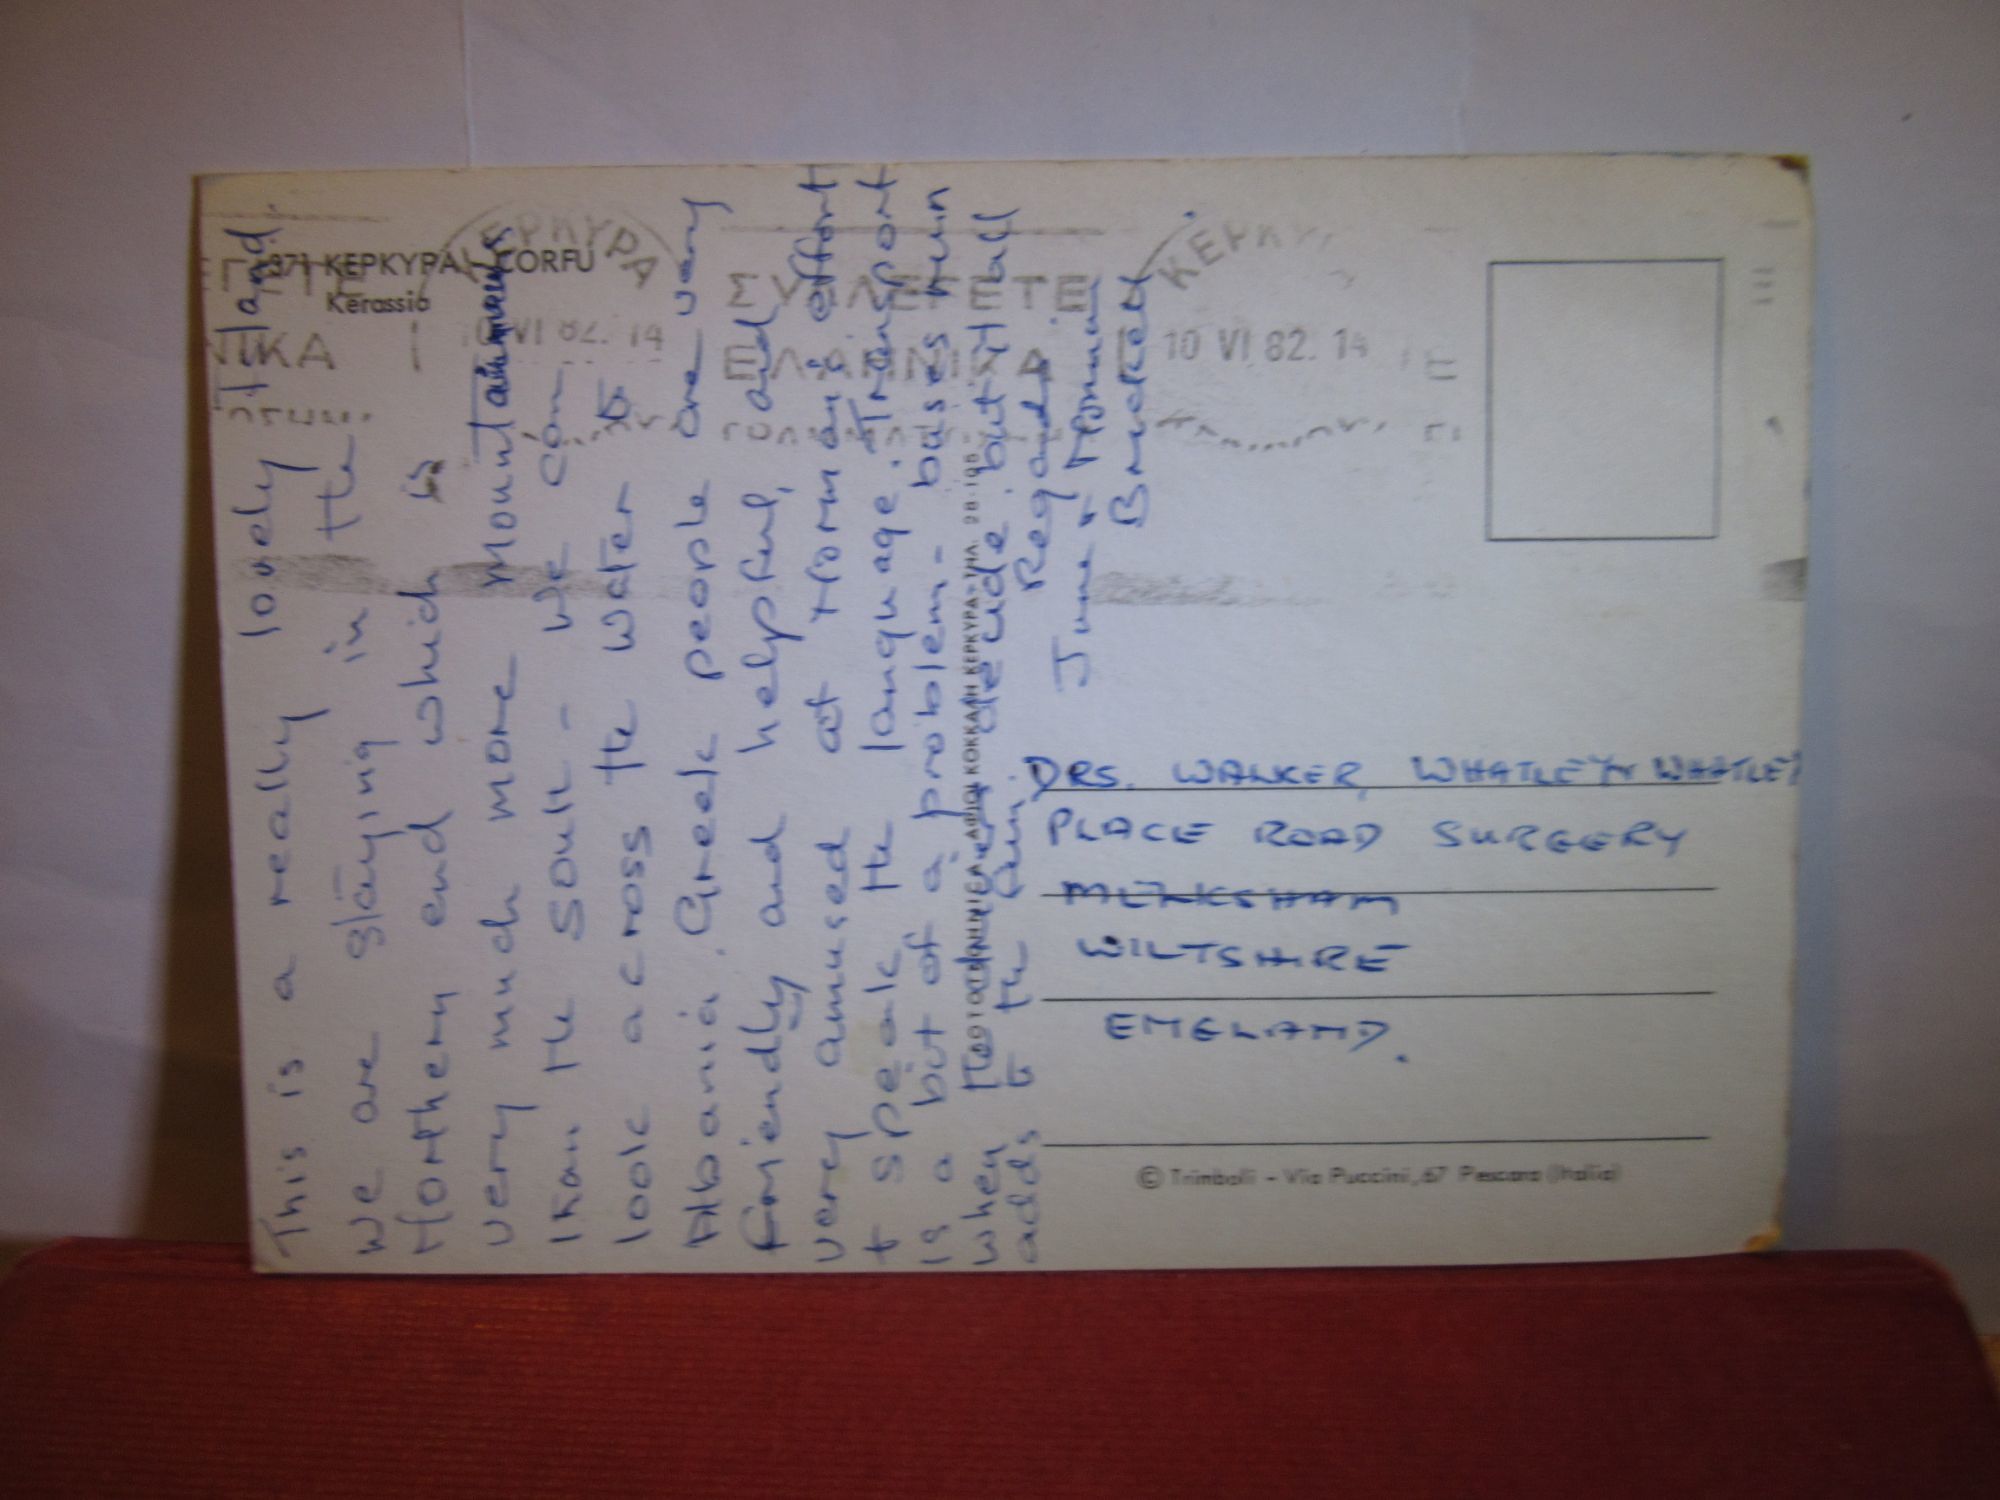 371 ΚΕΡΚΥΡΑ - CORFU
Kerassia
ΚΕΡΚΥΡΑ
10 VI 82. 14
ΕΛΛΗΝΙΚΑ
ΚΕΡΚΥ
10 VI 82. 14
This is a really lovely Island.
We are staying in the
Northern end which is
very much more mountainous
than the South - we can
look across the water to
Albania. Greek people are very
friendly and helpful, and
very amused at Norman's effort
to speak the language. Transport
is a bit of a problem - buses run
when decide but it all
adds to the fun.
Regards
June & Norman
Bracket
ΚΟΚΚΑΛΗ ΚΕΡΚΥΡΑ - ΤΗΛ. 28-195
DRS. WALKER, WHATLEY & WHATLEY
PLACE ROAD SURGERY
MELKSHAM
WILTSHIRE
ENGLAND.
© Trimboli - Via Puccini, 67 Pescara (Italia)